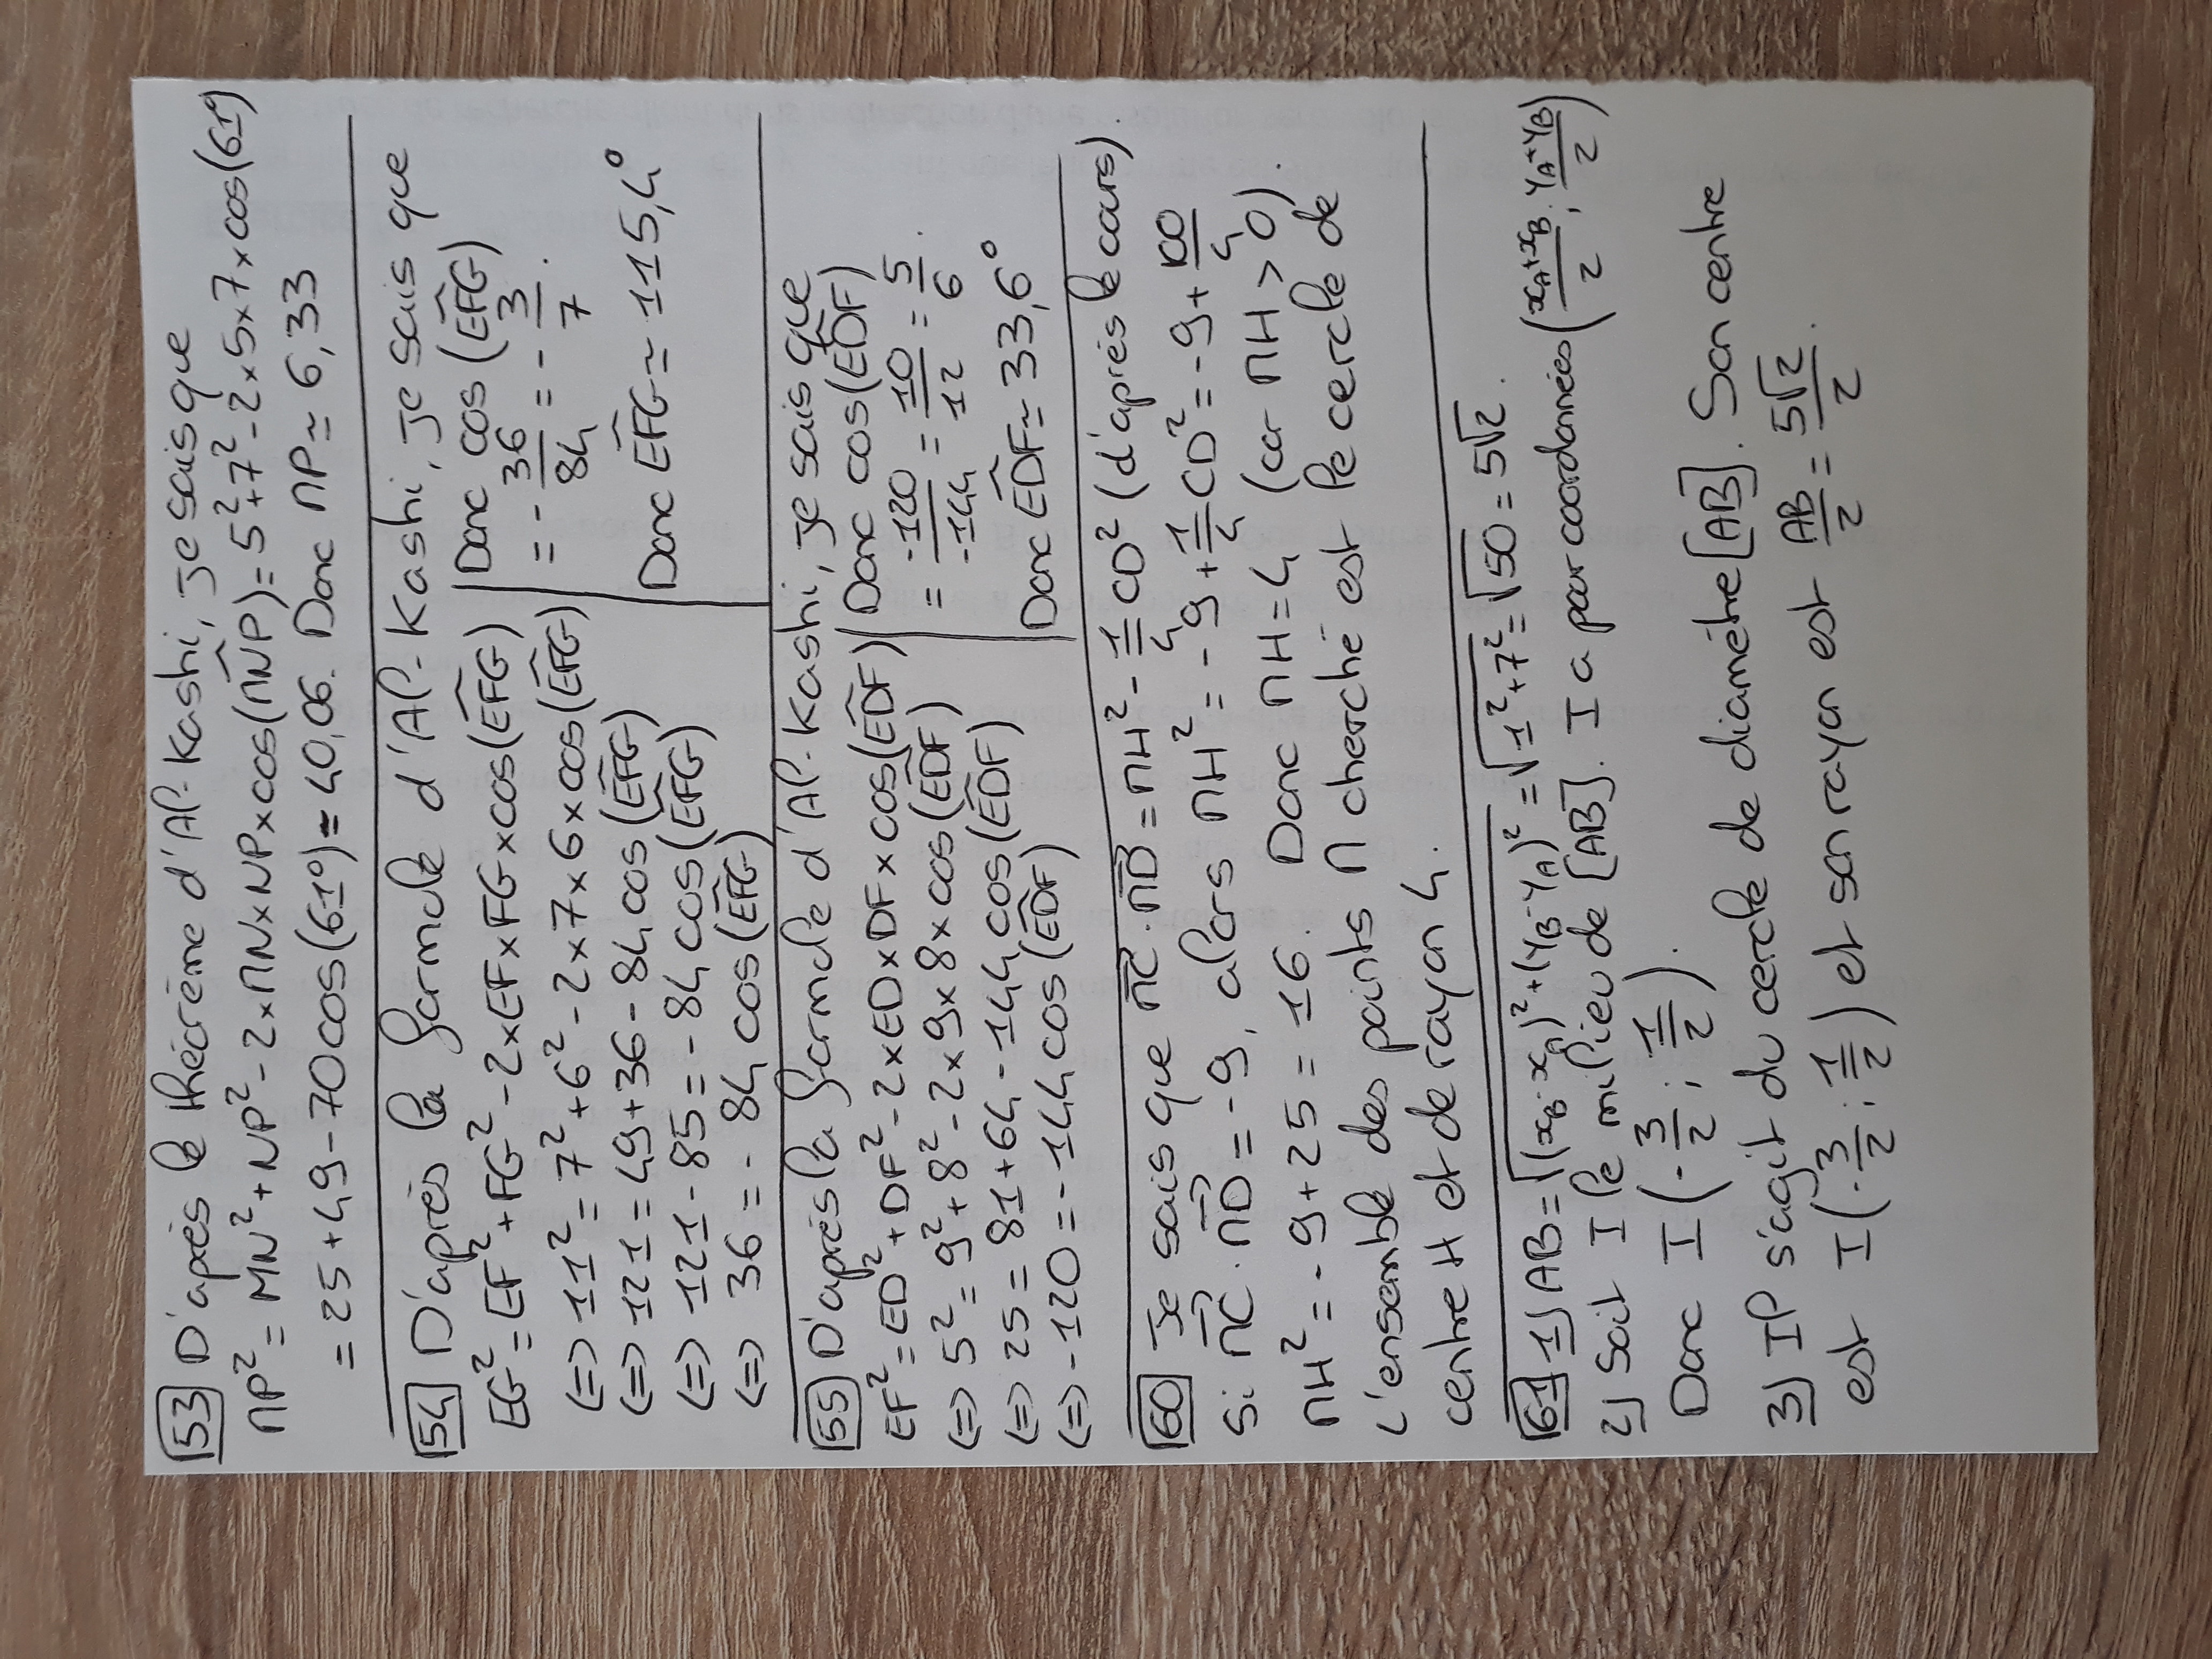 53 D'après le théorème d'Al-Kashi, je sais que
MP² = MN² + NP² - 2×MN×NP×cos(MNP) = 5²+7²-2×5×7×cos(61°)
= 25+49-70cos(61°) ≃ 40,06. Donc MP ≃ 6,33
54 D'après la formule d'Al-Kashi, je sais que
EG² = EF² + FG² - 2×EF×FG×cos(EFG)
(=) 11² = 7² + 6² - 2×7×6×cos(EFG)
(=) 121 = 49+36 - 84 cos(EFG)
(=) 121 - 85 = - 84 cos(EFG)
(=) 36 = - 84 cos(EFG)
Donc cos (EFG)
= - 36/84 = - 3/7.
Donc EFG ≃ 115,4°
55 D'après la formule d'Al-Kashi, je sais que
EF² = ED² + DF² - 2×ED×DF×cos(EDF)
(=) 5² = 9² + 8² - 2×9×8×cos(EDF)
(=) 25 = 81+64 - 144 cos(EDF)
(=) -120 = -144 cos(EDF)
Donc cos(EDF)
= -120/-144 = 10/12 = 5/6.
Donc EDF ≃ 33,6°
60 Je sais que MC.MD = MH² - 1/4 CD² (d'après le cours).
Si MC.MD = -9, alors MH² = -9 + 1/4 CD² = -9 + 100/4
MH² = -9+25 = 16. Donc MH = 4 (car MH > 0).
L'ensemble des points M cherché est le cercle de
centre H et de rayon 4.
61 1) AB = √((xB-xA)²+(yB-yA)²) = √(1²+7²) = √50 = 5√2.
2) Soit I le milieu de [AB]. I a pour coordonnées ((xA+xB)/2 ; (yA+yB)/2)
Donc I(-3/2 ; 1/2).
3) Il s'agit du cercle de diamètre [AB]. Son centre
est I(-3/2 ; 1/2) et son rayon est AB/2 = 5√2/2.